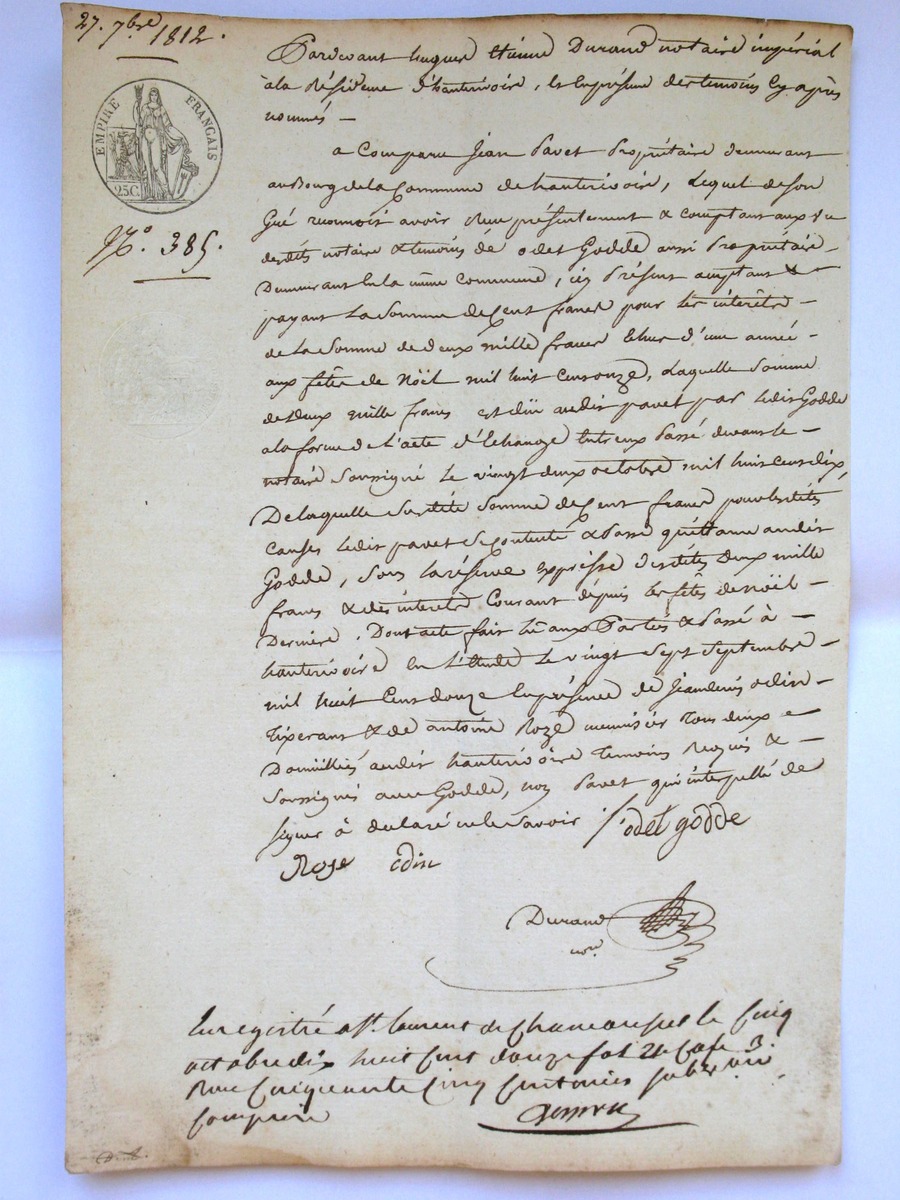 27. 7bre 1812.
EMPIRE FRANÇAIS
25C.
N.o 385.
Pardevant hugues Etienne Durand notaire impérial
à la Résidence d'hauterivoire, et en présence des temoins cy après
nommés —
a Comparu Jean Pavet Propriétaire demeurant
au Bourg de la Commune de hauterivoire, Lequel de son
Gré reconnoit avoir Reçu présentement & comptant aux vu
desdits notaire & temoins de odet Godde aussi Propriétaire
Demeurant En la même Commune, icy Présent acceptant &
payant La Somme de Cent francs pour les intérêts
de La Somme de deux mille francs Echus d'une année
aux fêtes de Nöel mil huit cent onze, Laquelle Somme
de Deux mille francs est düe audit pavet par Ledit Godde
a la forme de L'acte d'Echange Entreux Passé devant le
notaire Soussigné Le vingt deux octobre mil huit cent dix,
De laquelle Susdite Somme de Cent francs pour lesdites
Causes Ledit pavet Se Contente & Passe quittance audit
Godde, Sous la réserve expresse desdites deux mille
francs & des interets Courant dépuis Les fêtes de noël
Derniere. Dont acte fait Lu aux Parties & Passé à
hauterivoire En L'étude Le vingt Sept Septembre
mil huit Cent douze En présence de Jean denis odin
tixerant & de antoine Roze menuisier Tous deux
Domiciliés audit hauterivoire Temoins Requis &
Soussignés avec Godde, non Pavet qui interpellé de
signer à declaré ne le Savoir odet godde
Roze odin
Durand
nore.
Enregistré a St. laurent de Chamousset le Cinq
octobre dix huit Cent douze fol 21 Case 3.
Reçu Cinquante Cinq Centimes Subon
Compris